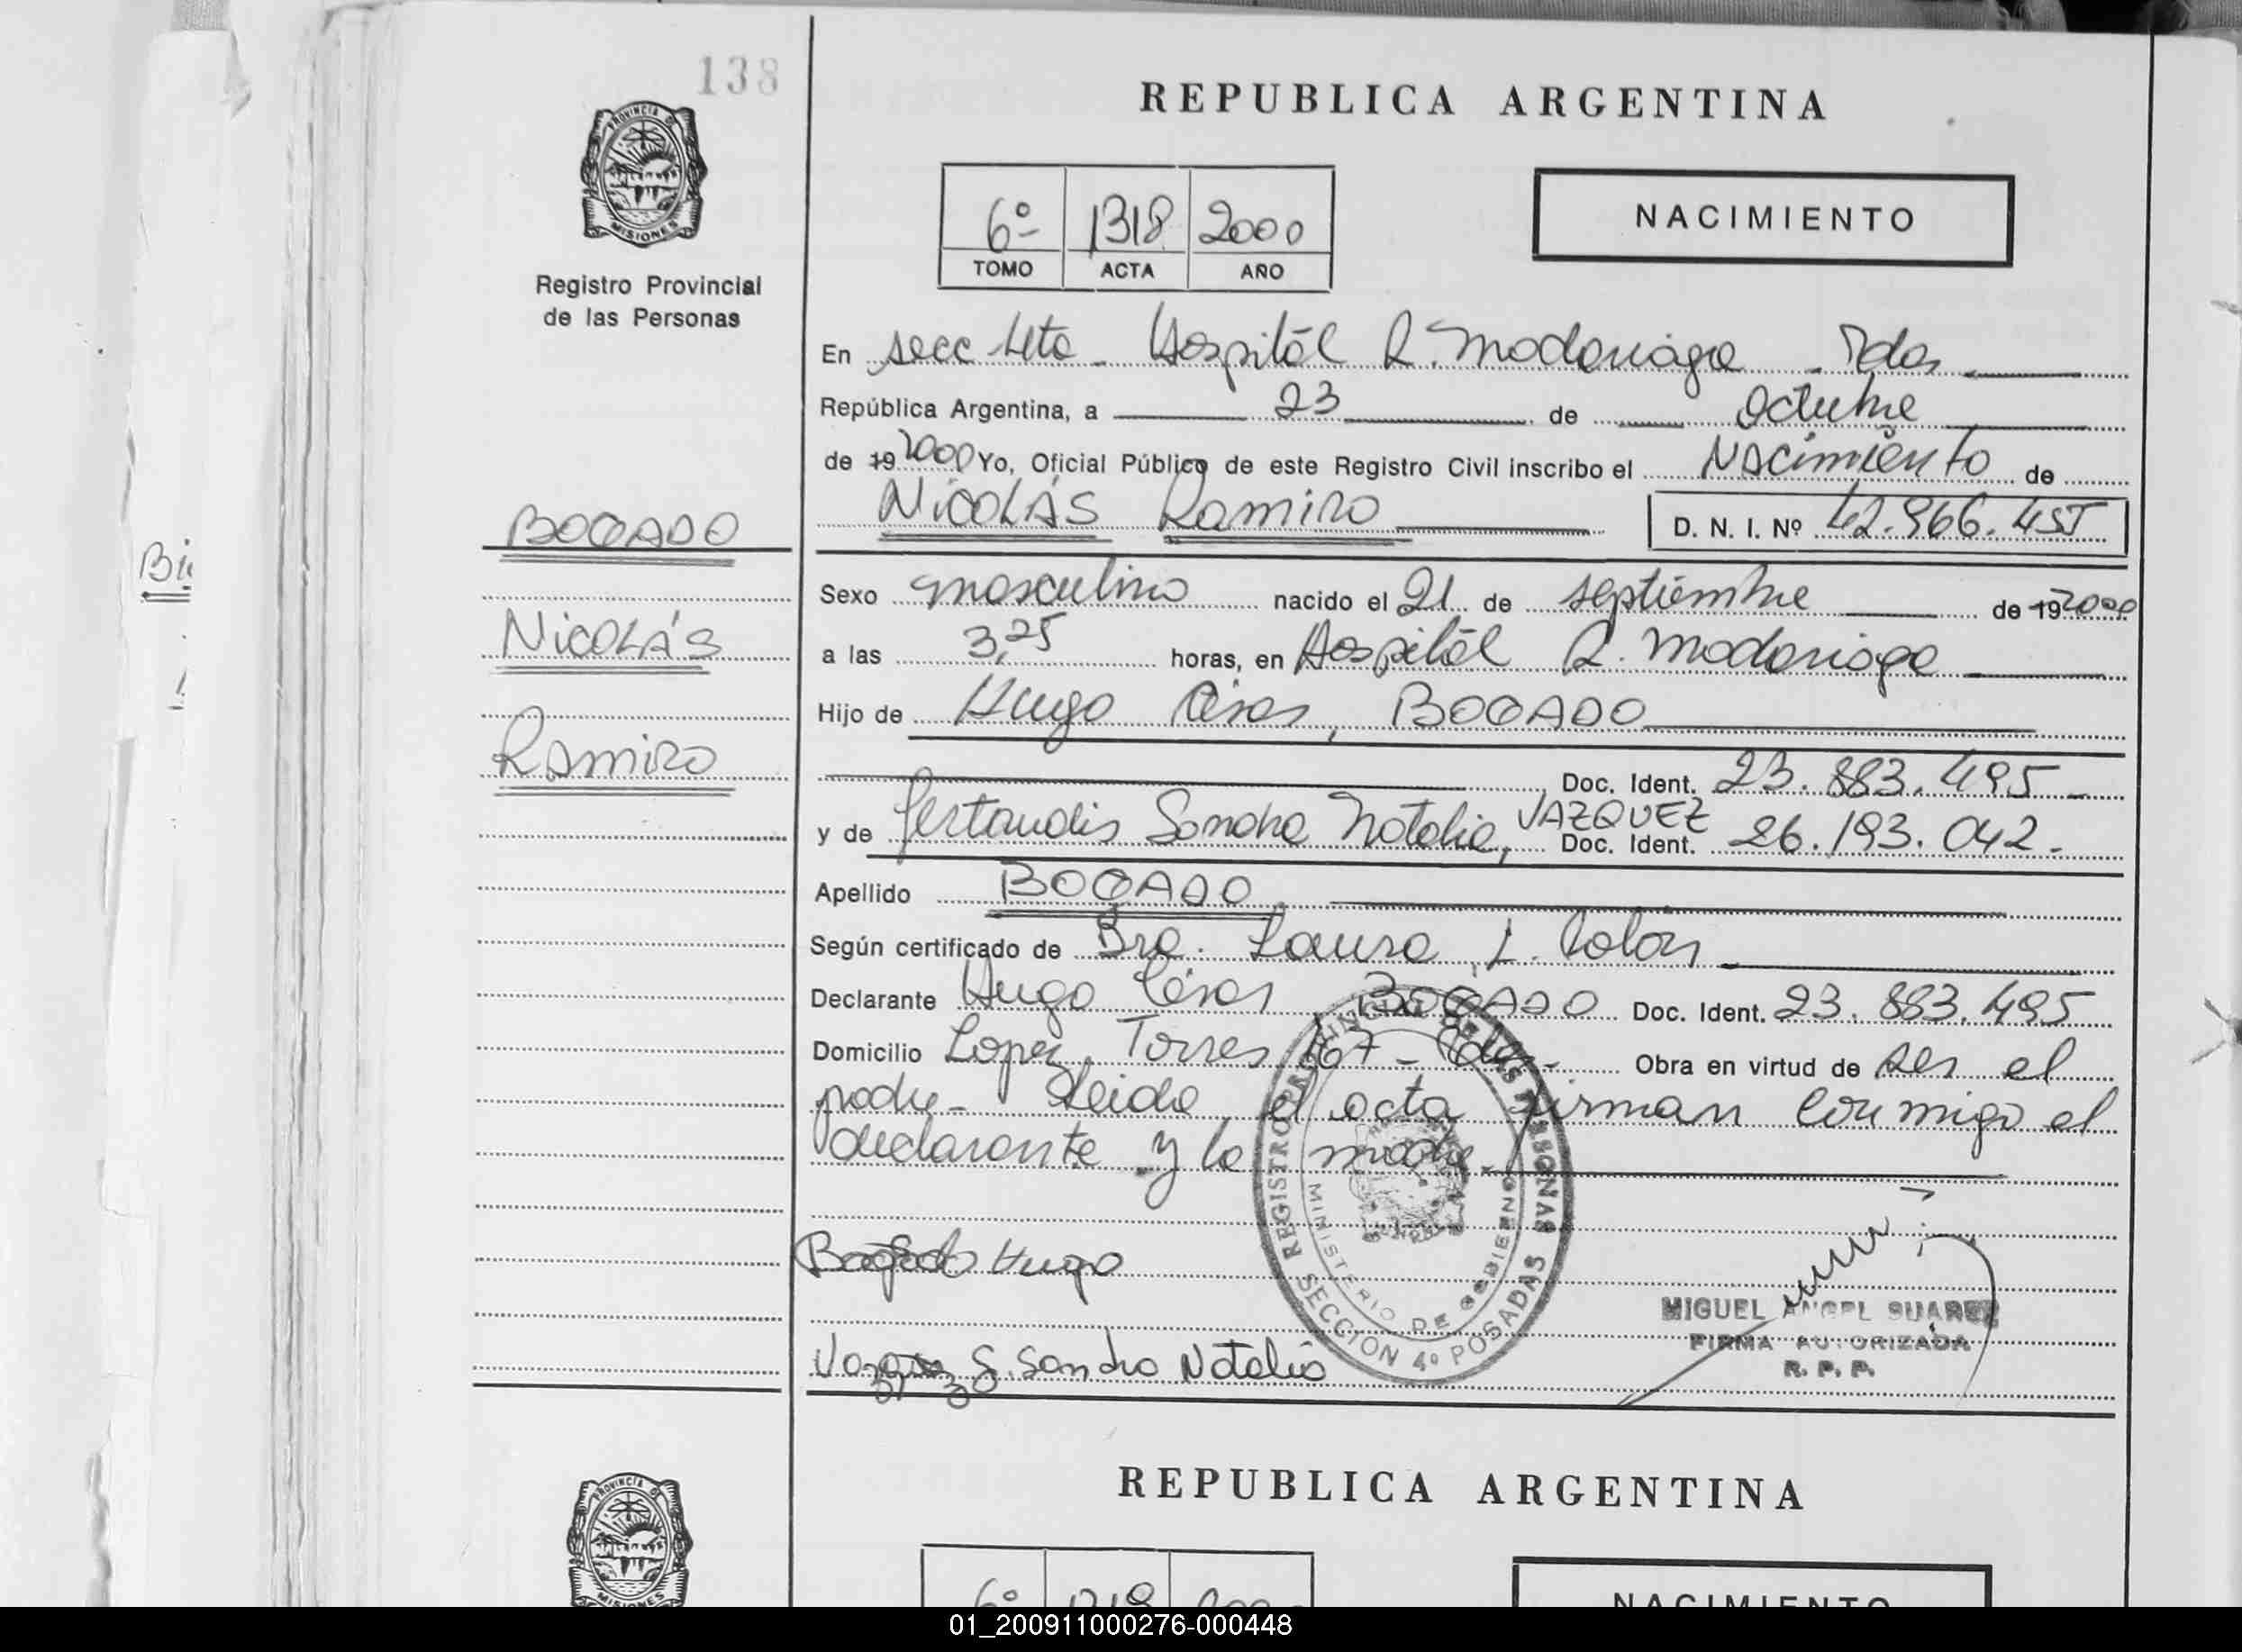 138
REPUBLICA ARGENTINA
PROVINCIA D
MISIONES
Registro Provincial
de las Personas
6º 1318 2000
TOMO ACTA AÑO
NACIMIENTO
En secc 4ta - Hospitál R. Madariaga - Pdas
República Argentina, a 23 de Octubre
de 19 2000 Yo, Oficial Público de este Registro Civil inscribo el Nacimiento de
Nicolás Ramiro D. N. I. Nº 42.966.457
BOGADO
Nicolás
Ramiro
Sexo masculino nacido el 21 de septiembre de 19 2000
a las 3,25 horas, en Hospitál R. Madariaga
Hijo de Hugo César, BOGADO
Doc. Ident. 23.883.495 -
y de Gertrudis Sandra Natalia, VAZQUEZ Doc. Ident. 26.193.042 -
Apellido BOGADO
Según certificado de Dra. Laura L. Colán
Declarante Hugo César BOGADO Doc. Ident. 23.883.495
Domicilio Lopez Torres 167 - Pdas - Obra en virtud de ser el
padre - Leida el acta firman conmigo el
declarante y la madre -
REGISTRO PROVINCIAL DE LAS PERSONAS
SECCION 4º POSADAS
MINISTERIO DE GOBIERNO
Bogado Hugo
MIGUEL ANGEL SUAREZ
FIRMA AUTORIZADA
R. P. P.
G. Sandra Natalia
REPUBLICA ARGENTINA
PROVINCIA
MISIONES
6º
NACIMIENTO
01_200911000276-000448